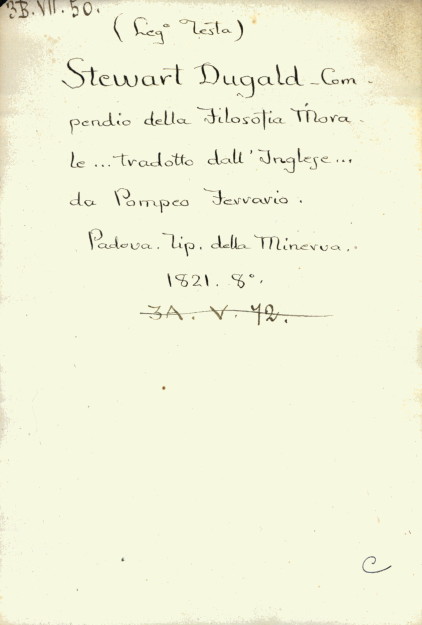 3B.VII.50.
(Leg° Testa)
Stewart Dugald - Com-
pendio della Filosofia Mora-
le ... tradotto dall' Inglese ...
da Pompeo Ferrario.
Padova. Tip. della Minerva..
1821. 8°.
3A. V. 42.
C